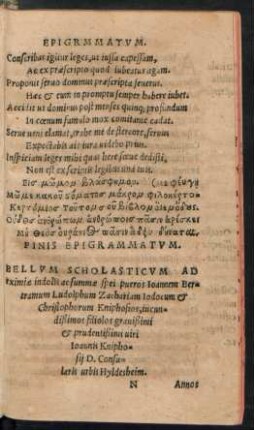 EPIGRMMATVM.
Conscribat igitur leges, ut iussa capessam,
Ac ex præscripto quod iubeatur agam.
Proponit seruo dominus præscripta seuerus.
Hæc & eum in promptu semper habere iubet.
Accidit ut dominus post menses quinq; profundum
In cœnum famulo mox comitante cadat.
Serue ueni clamat, probe me defferente, serui
Expectabis ait iura uidebo prius.
Inspiciam leges mihi quas heri sæue dedisti,
Non est ex scriptis legibus una tuis.
Εις μῶμον
Μῶμε κακοῦ
Κερδαίου
Οὐδὲν ἀνθρώποις
Μὴ Θεὸς
FINIS EPIGRAMMATVM.
BELLVM SCHOLASTICVM AD
eximiæ indolis ac summæ spei pueros Ioannem Ber
tramum Ludolphum Zachariam Iodocum &
Christophorum Kniphosios, iucun
dissimos filiolos grauissimi
& prudentissimi uiri
Ioannis Knipho
sij D. Consu
laris urbis Hyldesheim.
N Annos